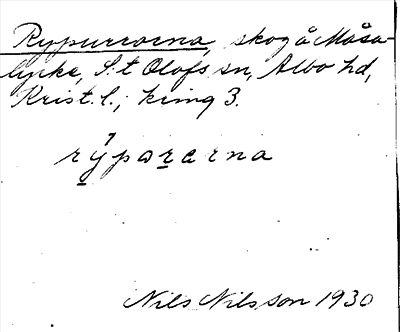 Rypurrorna, skog å Måsa-
lycke, S:t Olofs sn, Albo hd,
Krist. l.; kring 3.
rýpɷrarna
Nils Nilsson 1930